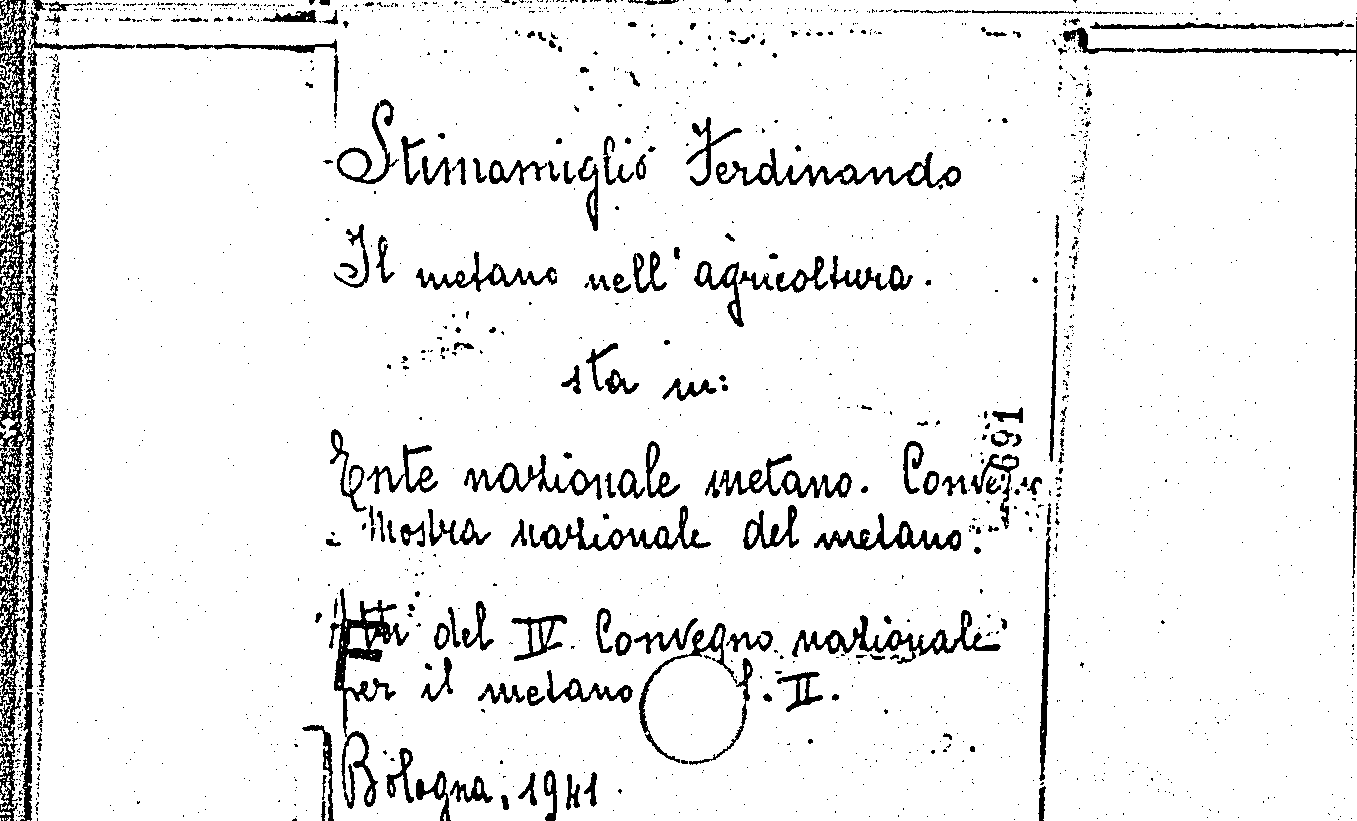 Stimamiglio Ferdinando
Il metano nell'agricoltura.
sta in:
Ente nazionale metano.
Mostra nazionale del metano.
Atti del IV Convegno nazionale
per il metano II.
Bologna, 1941
691